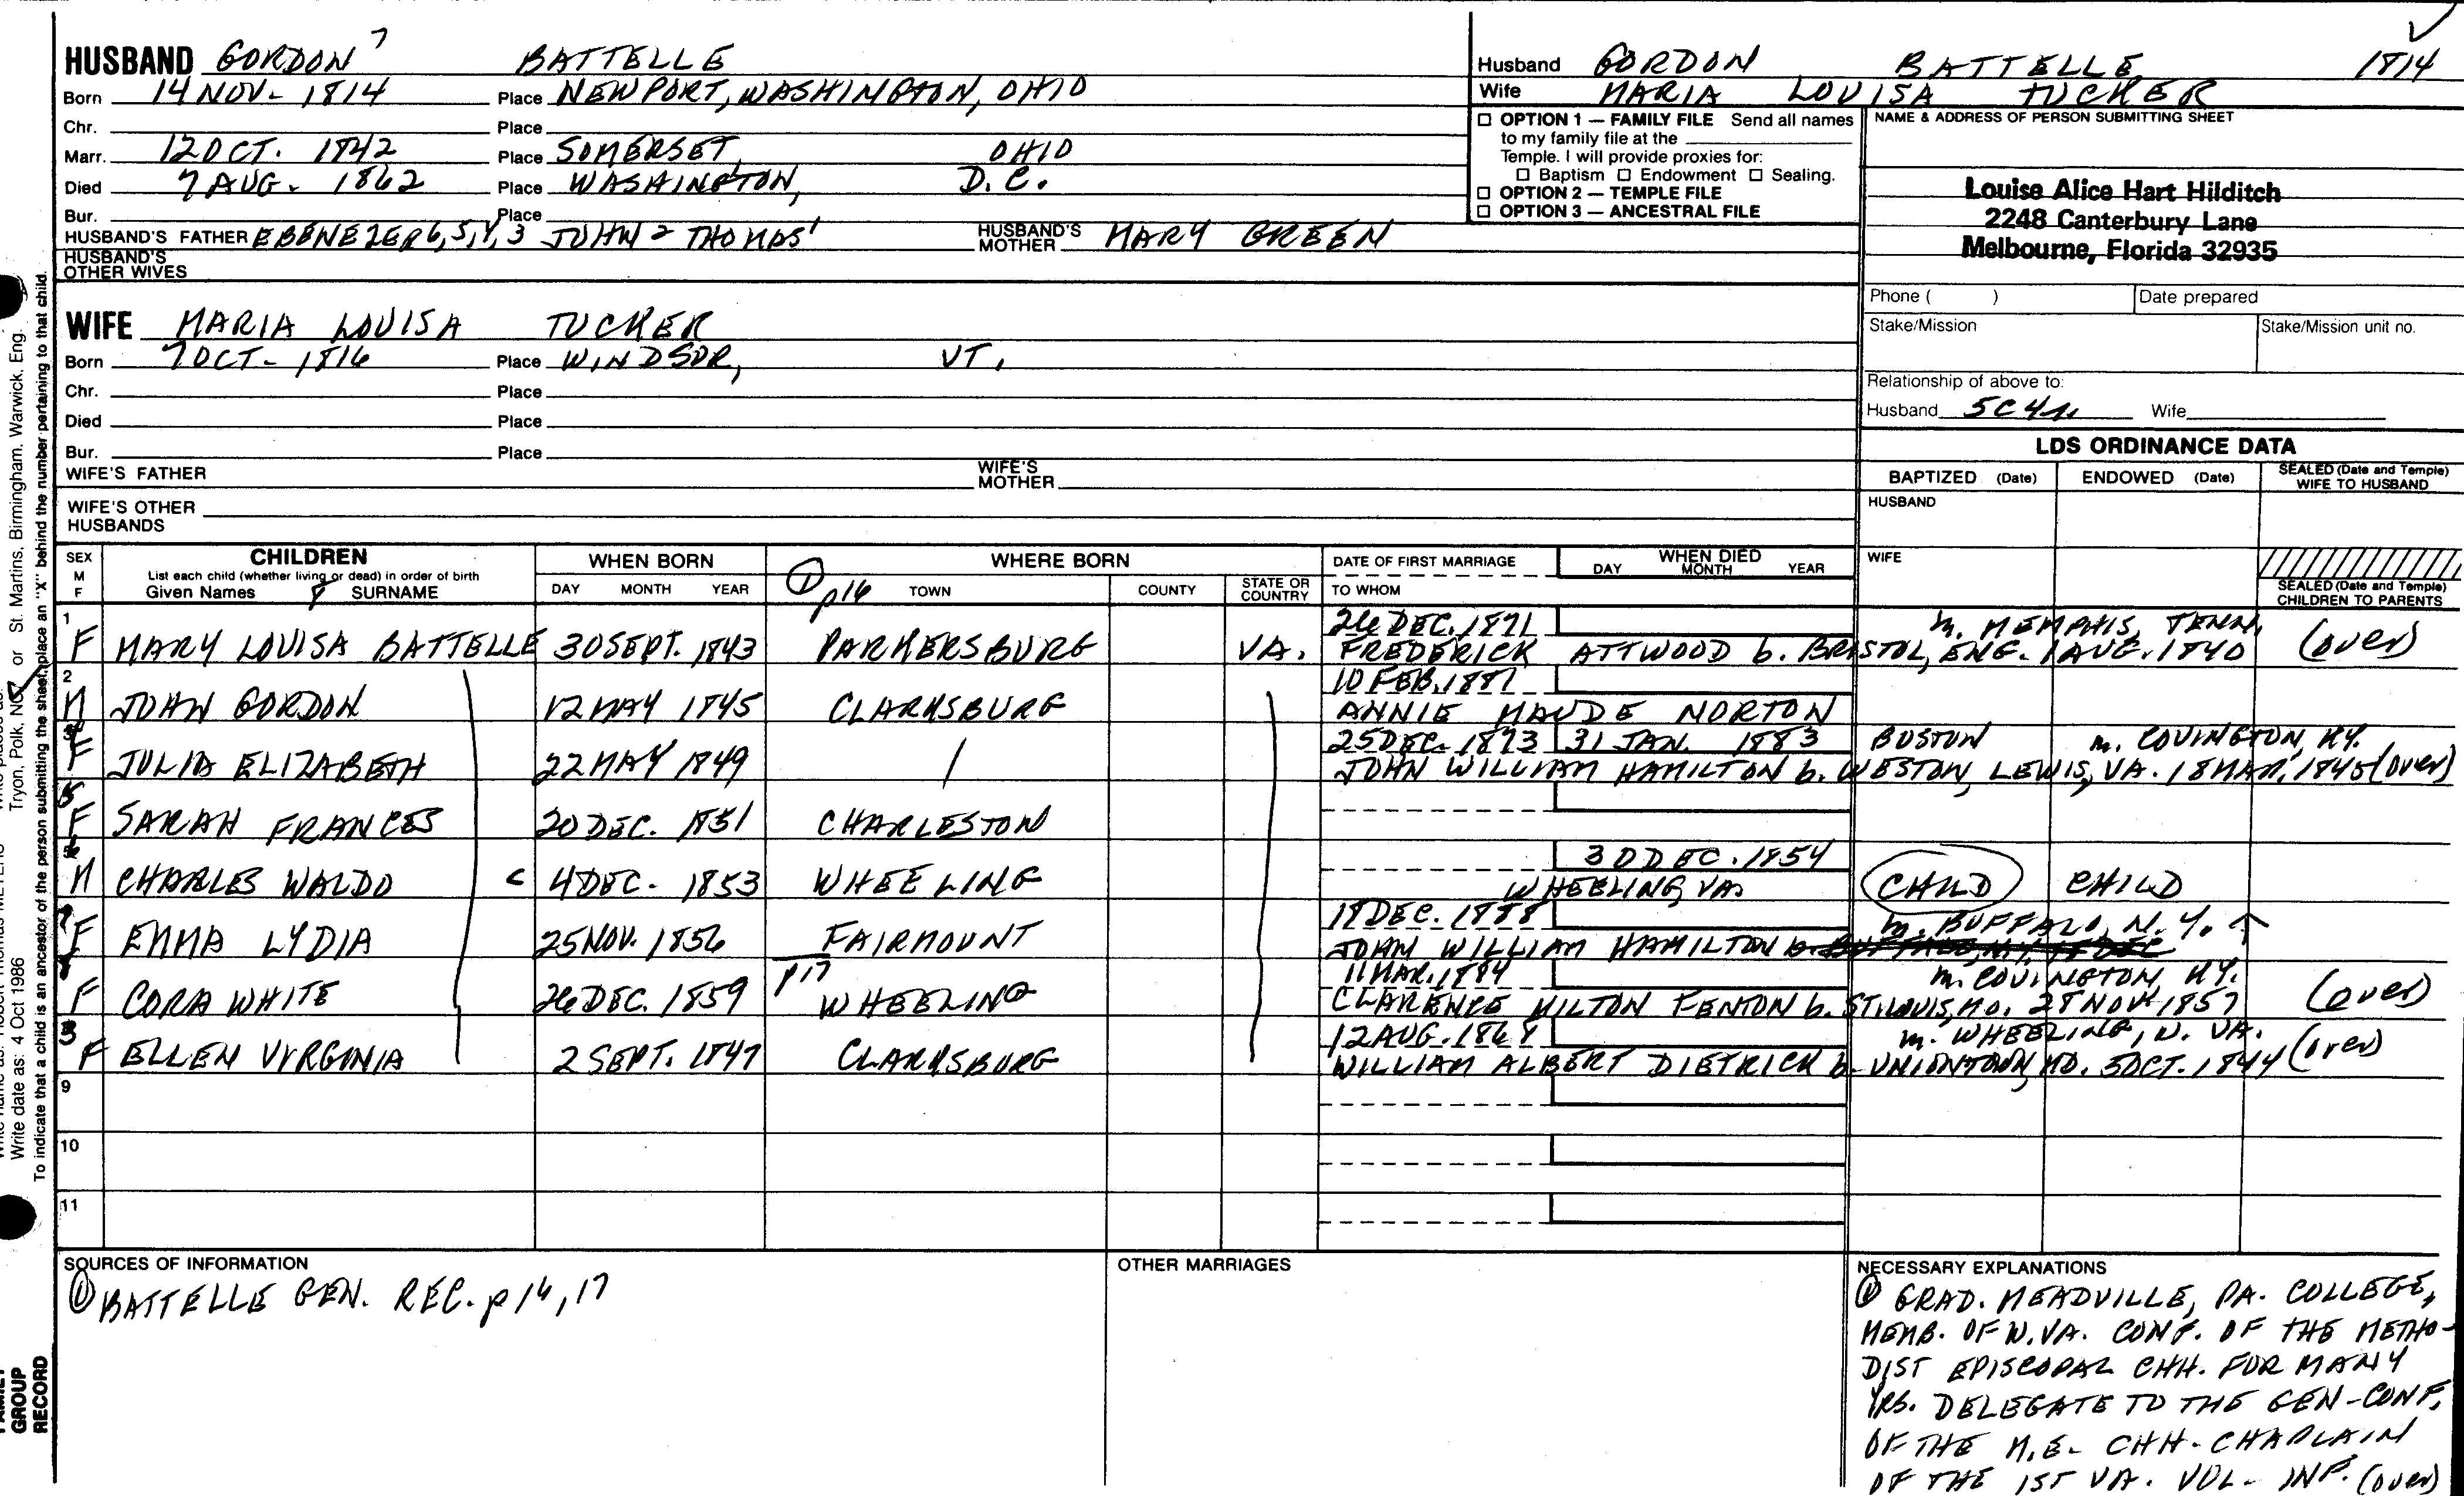 HUSBAND GORDON 7 BATTELLE
Born 14 NOV- 1814 Place NEWPORT, WASHINGTON, OHIO
Chr. Place
Marr. 12 OCT. 1842 Place SOMERSET, OHIO
Died 7 AUG. 1862 Place WASHINGTON, D.C.
Bur. Place
HUSBAND'S FATHER EBENEZER 6, 5, 4, 3 JOHN 2 THOMAS 1 HUSBAND'S MOTHER MARY GREEN
HUSBAND'S OTHER WIVES
Husband GORDON BATTELLE 1814
Wife MARIA LOUISA TUCKER
☐ OPTION 1 — FAMILY FILE Send all names
to my family file at the
Temple. I will provide proxies for:
☐ Baptism ☐ Endowment ☐ Sealing.
☐ OPTION 2 — TEMPLE FILE
☐ OPTION 3 — ANCESTRAL FILE
NAME & ADDRESS OF PERSON SUBMITTING SHEET
Louise Alice Hart Hilditch
2248 Canterbury Lane
Melbourne, Florida 32935
Phone ( ) Date prepared
Stake/Mission Stake/Mission unit no.
Relationship of above to:
Husband 5C4r. Wife
WIFE MARIA LOUISA TUCKER
Born 7 OCT- 1816 Place WINDSOR, VT.
Chr. Place
Died Place
Bur. Place
WIFE'S FATHER WIFE'S MOTHER
WIFE'S OTHER HUSBANDS
LDS ORDINANCE DATA
BAPTIZED (Date) ENDOWED (Date) SEALED (Date and Temple) WIFE TO HUSBAND
HUSBAND
WIFE
SEALED (Date and Temple) CHILDREN TO PARENTS
SEX M F CHILDREN WHEN BORN WHERE BORN DATE OF FIRST MARRIAGE WHEN DIED
List each child (whether living or dead) in order of birth
Given Names 8 SURNAME DAY MONTH YEAR ① p16 TOWN COUNTY STATE OR COUNTRY TO WHOM DAY MONTH YEAR
1 26 DEC. 1871 m. MEMPHIS, TENN.
F MARY LOUISA BATTELLE 30 SEPT. 1843 PARKERSBURG VA. FREDERICK ATTWOOD b. BRISTOL, ENG. 1 AUG. 1840 (over)
2 10 FEB. 1887
M JOHN GORDON 12 MAY 1845 CLARKSBURG ANNIE MAUDE NORTON
25 DEC. 1873 31 JAN. 1883 BOSTON m. COVINGTON, KY.
F JULIA ELIZABETH 22 MAY 1849 / JOHN WILLIAM HAMILTON b. WESTON, LEWIS, VA. 18 MAR. 1845 (over)
5
F SARAH FRANCES 20 DEC. 1851 CHARLESTON
6 30 DEC. 1854
M CHARLES WALDO C 4 DEC- 1853 WHEELING WHEELING, VA. CHILD CHILD
7 18 DEC. 1888 m. BUFFALO, N.Y. ↑
F EMMA LYDIA 25 NOV. 1856 FAIRMOUNT JOHN WILLIAM HAMILTON
8 p17 11 MAR. 1884 m. COVINGTON, KY.
F CORA WHITE 26 DEC. 1859 WHEELING CLARENCE MILTON FENTON b. ST. LOUIS, MO. 28 NOV. 1857 (over)
3 12 AUG. 1864 m. WHEELING, W. VA.
F ELLEN VIRGINIA 2 SEPT. 1847 CLARKSBURG WILLIAM ALBERT DIETRICK b. UNIONTOWN, MD. 5 OCT. 1844 (over)
9
10
11
SOURCES OF INFORMATION
① BATTELLE GEN. REC. p 16, 17
OTHER MARRIAGES
NECESSARY EXPLANATIONS
① GRAD. MEADVILLE, PA. COLLEGE,
MEMB. OF W. VA. CONF. OF THE METHO-
DIST EPISCOPAL CHH. FOR MANY
YRS. DELEGATE TO THE GEN-CONF,
OF THE M.E. CHH- CHAPLAIN
OF THE 1ST VA. VOL- INF. (over)
Tryon, Polk, NC or St. Martins, Birmingham, Warwick, Eng.
Write date as: 4 Oct 1986
To indicate that a child is an ancestor of the person submitting the sheet, place an "X" behind the number pertaining to that child.
FAMILY
GROUP
RECORD